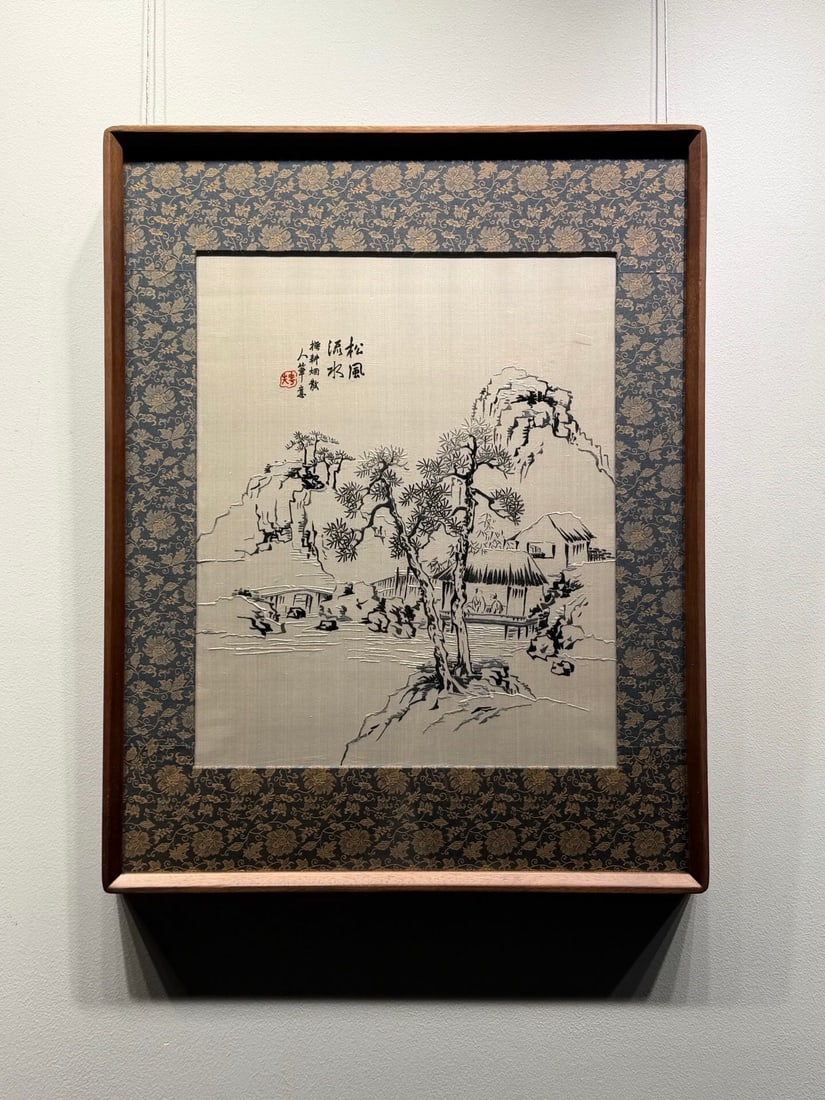 松風
流水
耕烟散
人筆意